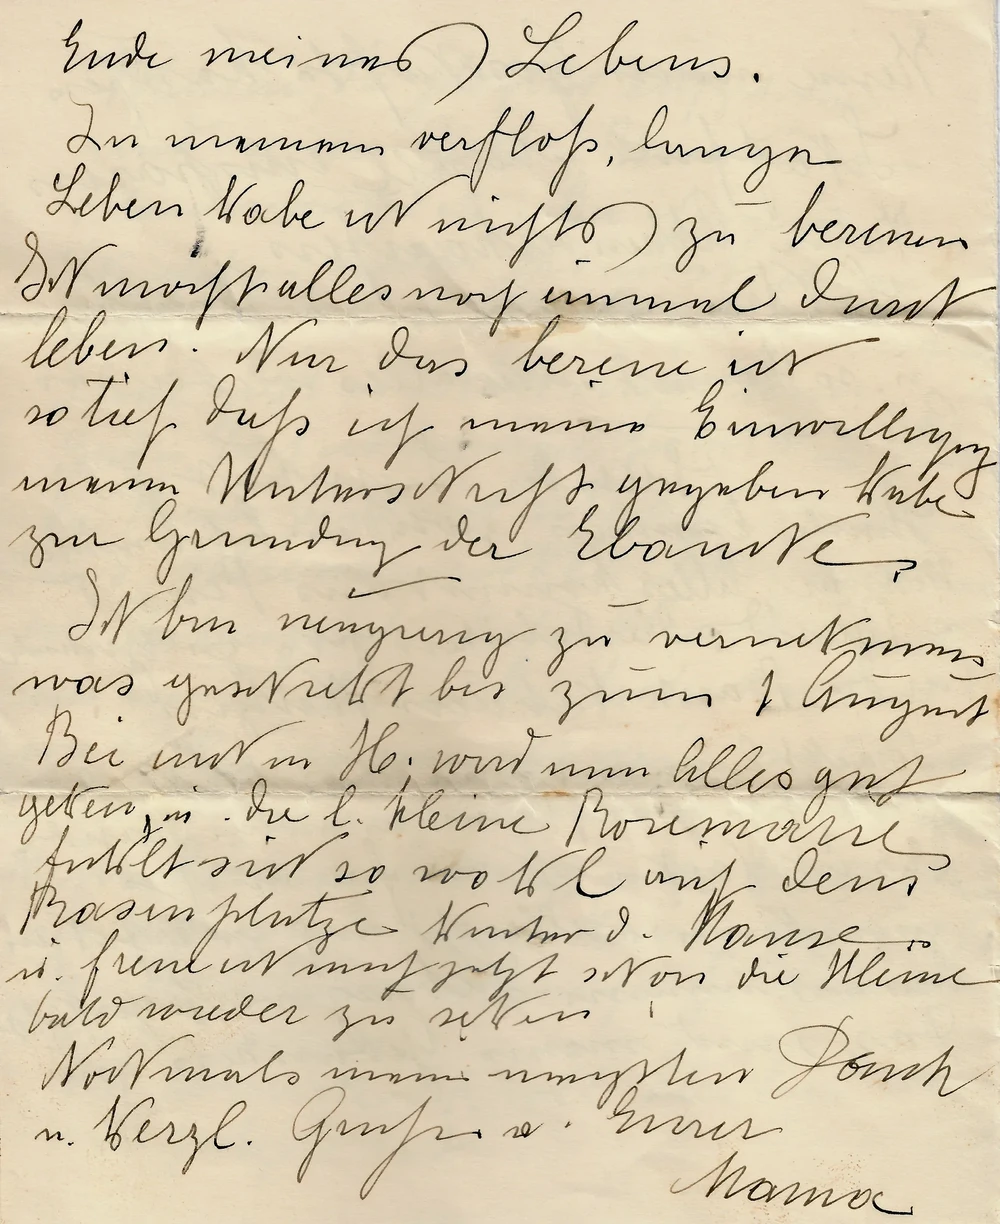 Ende meines Lebens.
In meinem verfloß, langen
Leben habe ich nichts zu bereuen
Ich möcht alles noch einmal durch
leben. Nur das bereue ich
so tief daß ich meine Einwilligung
meine Unterschrift gegeben habe
zur Gründung der
Ich bin neugierig zu vernehmen
was geschieht bis zum 1 August
Bei euch in H. wird nun Alles gut
gehen, u. die l. kleine Rosemarie
fühlt sich so wohl auf dem
Rasenplatze hinter d. Hause.
u. freue ich mich jetzt schon die Kleine
bald wieder zu sehen !
Nochmals meinen innigsten Dank
u. herzl. Grüße v. Eurer
Mama